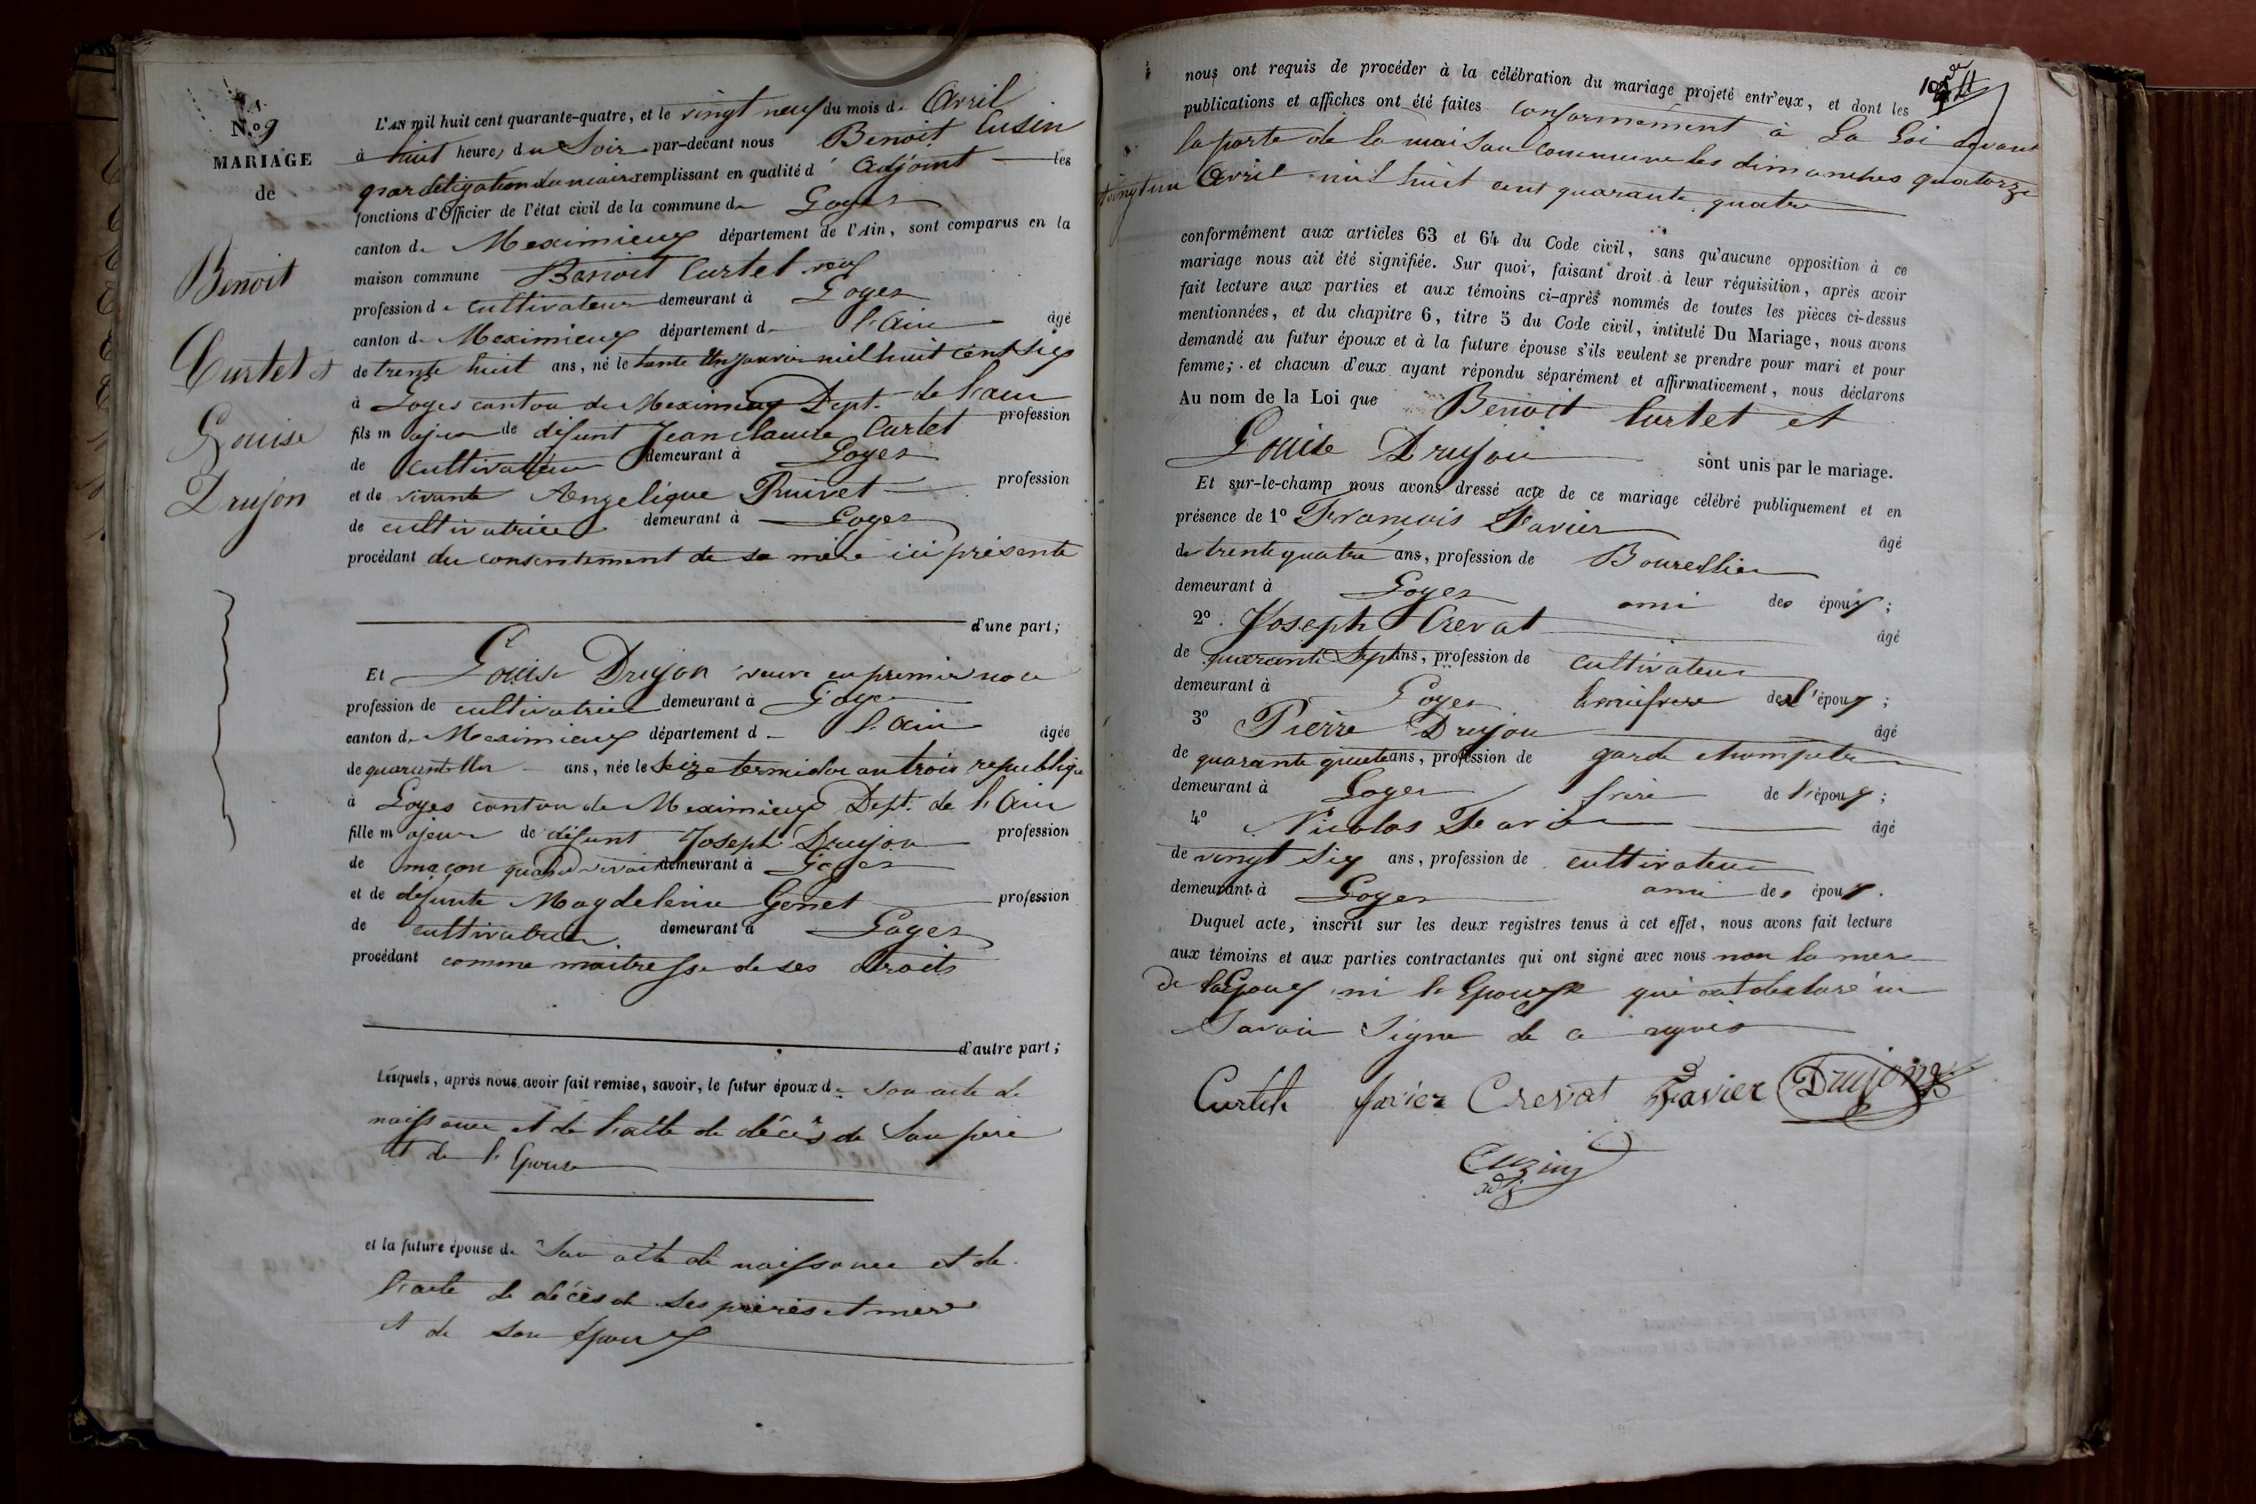 N.º 9
MARIAGE
de
Benoit
Curtet et
Louise
Drujon
L'AN mil huit cent quarante-quatre, et le vingt neuf du mois de Avril
à huit heures du Soir par-devant nous Benoit Cusin
par délégation du maire remplissant en qualité d' Adjoint les
fonctions d'Officier de l'état civil de la commune de Loyes
canton de Meximieux département de l'Ain, sont comparus en la
maison commune Benoit Curtet
profession de cultivateur demeurant à Loyes
canton de Meximieux département de l'Ain âgé
de trente huit ans, né le trente Un janvier mil huit cent six
à Loyes canton de Meximieux Dept. de l'ain
fils majeur de défunt Jean claude Curtet profession
de cultivateur demeurant à Loyes
et de vivante Angelique Pruivet profession
de cultivatrice demeurant à Loyes
procédant du consentement de sa mère ici présente
d'une part;
Et Louise Drujon veuve en premier noce
profession de cultivatrice demeurant à Loyes
canton de Meximieux département d l'Ain âgée
de quarante Un ans, née le Seize termidor an trois republique
à Loyes canton de Meximieux Dept. de l'Ain
fille majeure de défunt Joseph Drujon profession
de maçon quand vivait demeurant à Loyes
et de défunte Magdeleine Genet profession
de cultivatrice demeurant à Loyes
procédant comme maitresse de ses droits
d'autre part;
Lesquels, après nous avoir fait remise, savoir, le futur époux de son acte de
naissance et de l'acte de décès de Son père
et de l'Epouse
et la future épouse de Son acte de naissance et de
l'acte de décès de Ses pères et mère
et de son époux
nous ont requis de procéder à la célébration du mariage projeté entr'eux, et dont les
publications et affiches ont été faites conformément à La Loi devant
la porte de la maison commune les dimanches quatorze
vingt un Avril mil huit cent quarante quatre
conformément aux articles 63 et 64 du Code civil, sans qu'aucune opposition à ce
mariage nous ait été signifiée. Sur quoi, faisant droit à leur réquisition, après avoir
fait lecture aux parties et aux témoins ci-après nommés de toutes les pièces ci-dessus
mentionnées, et du chapitre 6, titre 5 du Code civil, intitulé Du Mariage, nous avons
demandé au futur époux et à la future épouse s'ils veulent se prendre pour mari et pour
femme; et chacun d'eux ayant répondu séparément et affirmativement, nous déclarons
Au nom de la Loi que Benoit Curtet et
Louise Drujon sont unis par le mariage.
Et sur-le-champ nous avons dressé acte de ce mariage célébré publiquement et en
présence de 1º François Favier âgé
de trente quatre ans, profession de Bourellier
demeurant à Loyes ami des époux;
2º Joseph Crevat âgé
de quarante Sept ans, profession de cultivateur
demeurant à Loyes de l'époux;
3º Pierre Drujon âgé
de quarante ans, profession de garde champetre
demeurant à Loyes frère de l'épouse;
4º Nicolas Favier âgé
de vingt Six ans, profession de cultivateur
demeurant à Loyes ami des époux.
Duquel acte, inscrit sur les deux registres tenus à cet effet, nous avons fait lecture
aux témoins et aux parties contractantes qui ont signé avec nous non la mere
de l'Epoux ni l'Epouse qui ont déclaré ne
Savoir Signé de ce requis
Curtet favier Crevat Favier Drujon
Cuzin
adj